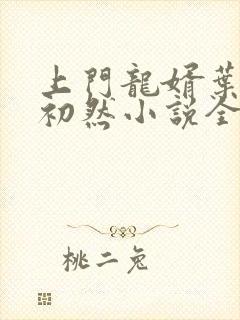 上門龍婿葉
初然小說全
桃二兔